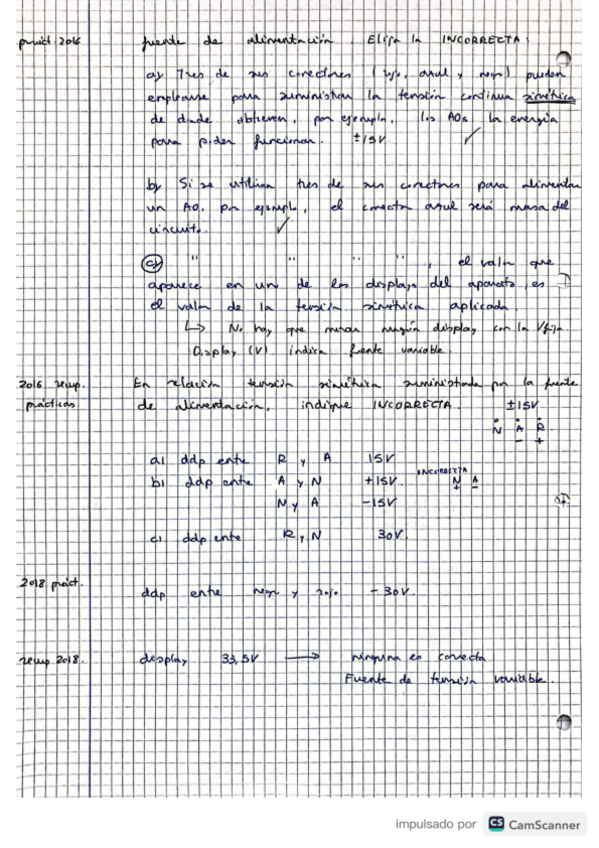 pract. 2016 fuente de alimentación. Elija la INCORRECTA:
a) Tres de sus conectores (rojo, azul y negro) pueden
emplearse para suministrar la tensión continua simétrica
de donde obtienen, por ejemplo, los AOs la energía
para poder funcionar. ±15V ✓
b) Si se utilizan tres de sus conectores para alimentar
un AO, por ejemplo, el conector azul será masa del
circuito. ✓
c) " " " " , el valor que
aparece en uno de los displays del aparato, es
el valor de la tensión simétrica aplicada.
↳ No hay que mirar ningún display con la Vfija.
Display (V) indica fuente variable.
2016 recup. En relación tensión simétrica suministrada por la fuente
prácticas de alimentación, indique INCORRECTA. ±15V
N A R
- +
a) ddp entre R y A 15V
b) ddp entre A y N +15V INCORRECTA N A
+ -
N y A -15V
c) ddp entre R y N 30V.
2018 pract. ddp entre negro y rojo -30V.
recup 2018. display 33,5V → ninguna es correcta
Fuente de tensión variable.
impulsado por CS CamScanner